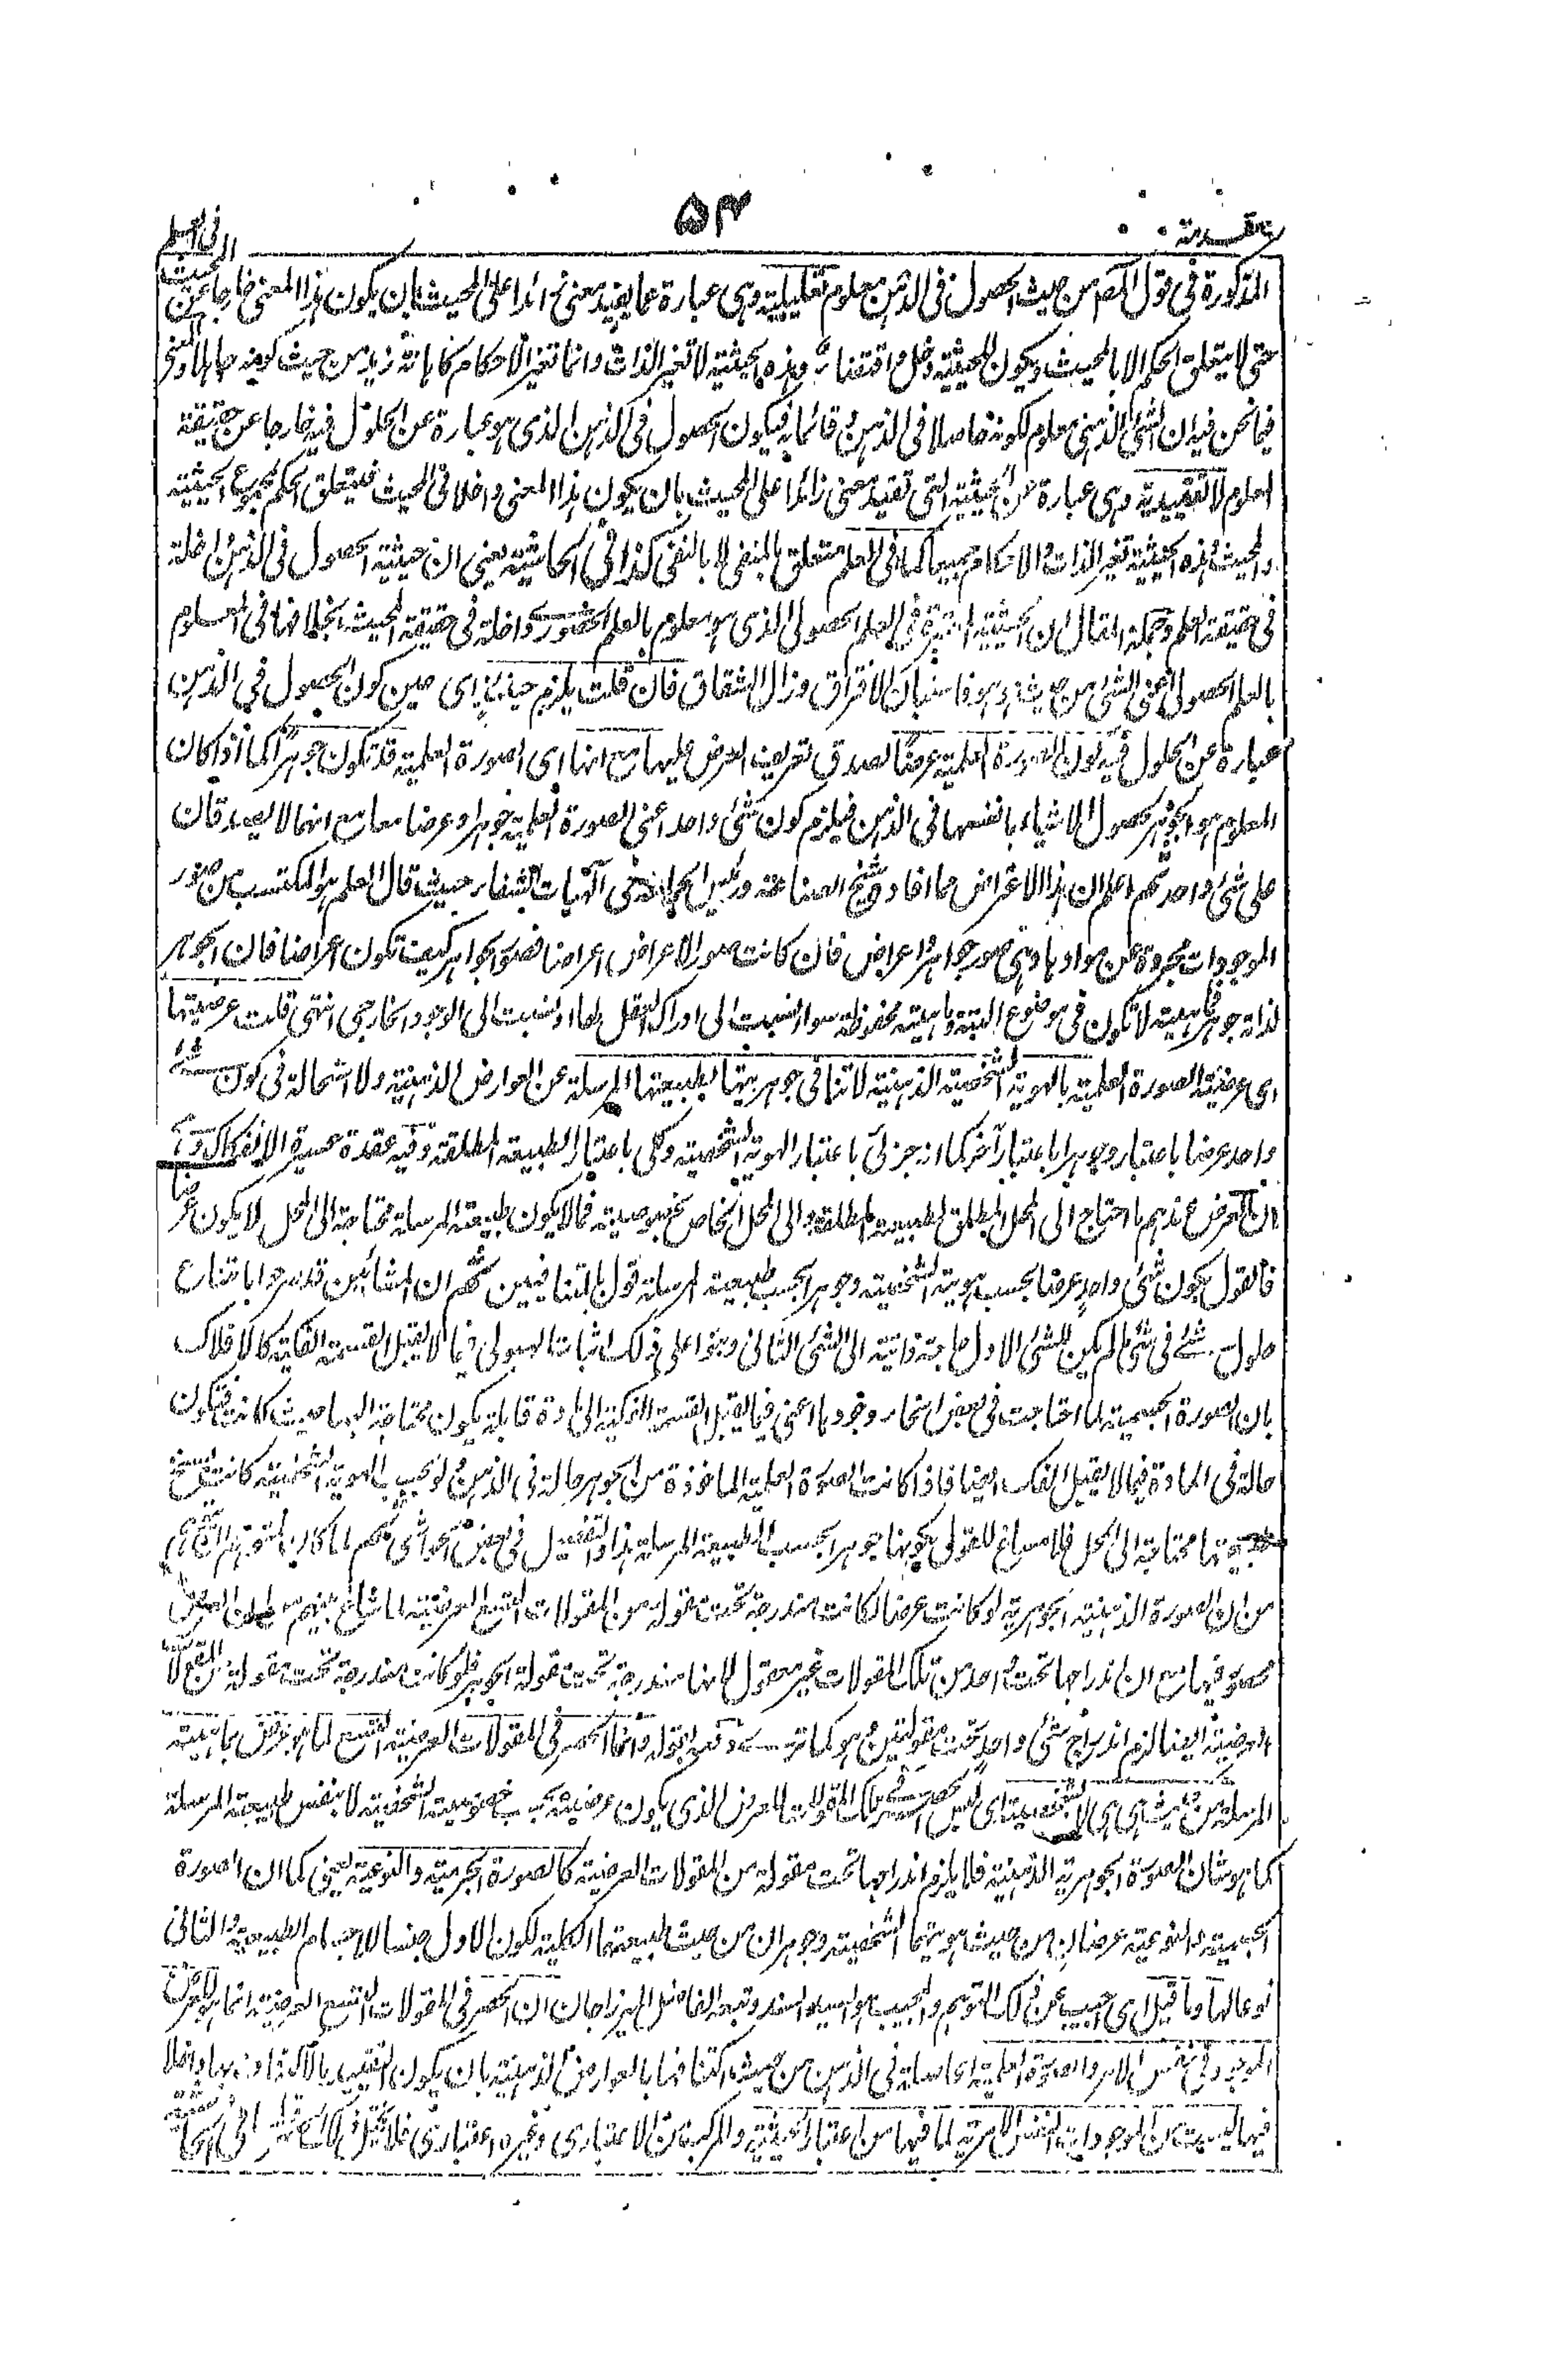 مقدمة
٥٣
في العلم
المذكورة في قول المصـ من حيث الحصول في الذهن معلوم تعليلية وهي عبارة عما يفيد معنى زائدا على المحيث بان يكون هذا المعنى خارجا عن المحيث
حتى لا يتعلق الحكم الا بالمحيث ويكون للحيثية دخل واقتضاء وهذه الحيثية لا تغير الذات وانما تغير الاحكام كاهانة زيد من حيث كونه جاهلا والمعنى
فيما نحن فيه ان الشئ الذهني معلوم لكونه حاصلا في الذهن وقائما به فيكون الحصول في الذهن الذي هو عبارة عن الحلول فيه خارجا عن حقيقة
المعلوم لا تقييدية وهي عبارة عن الحيثية التي تفيد معنى زائدا على المحيث بان يكون هذا المعنى داخلا في المحيث فيتعلق الحكم بمجموع الحيثية
والمحيث وهذه الحيثية تغير الذات والاحكام جميعا كما في العلم متعلق بالمنفى لا بالنفى كذا في الحاشية يعني ان حيثية الحصول في الذهن داخلة
في حقيقة العلم وجملة المقال ان الحيثية المعتبرة في العلم الحصولي الذي هو معلوم بالعلم الحضوري داخلة في حقيقة المحيث بخلافها في المعلوم
بالعلم الحصولي اعني الشئ من حيث هو هو فاستبان الافتراق وزال الشقاق فان قلت يلزم حينئذ اي حين كون الحصول في الذهن
عبارة عن الحلول فيه كون الصورة العلمية عرضا لصدق تعريف العرض عليها مع انها اي الصورة العلمية قد تكون جوهرا كما اذا كان
المعلوم هو الجوهر لحصول الاشياء بانفسها في الذهن فيلزم كون شئ واحد اعني الصورة العلمية جوهرا وعرضا معا مع انهما لا يصدقان
على شئ واحد ثم اعلم ان هذا الاعتراض مما افاده شيخ الصناعة ورئيس الحكمة في الهيات الشفاء حيث قال العلم هو المكتسب من صور
الموجودات مجردة عن موادها وهي صور جواهر واعراض فان كانت صور الاعراض اعراضا فصور الجواهر كيف تكون اعراضا فان الجوهر
لذاته جوهر فماهيته لا تكون في موضوع البتة وماهيته محفوظة سواء نسبت الى ادراك العقل لها او نسبت الى الوجود الخارجي انتهى قلت عرضيتها
اي عرضية الصورة العلمية بالهوية الشخصية الذهنية لا تنافي جوهريتها بطبيعتها المرسلة عن العوارض الذهنية ولا استحالة في كون شئ
واحد عرضا باعتبار وجوهرا باعتبار آخر كما انه جزئي باعتبار الهوية الشخصية وكلي باعتبار الطبيعة المطلقة وفيه عقدة عسيرة الانفكاك
ان العرض عندهم ما احتاج الى المحل المطلق لطبيعته المطلقة والى المحل الخاص لخصوصيته فما لا يكون طبيعته المرسلة محتاجة الى المحل لا يكون عرضا
فالقول بكون شئ واحد عرضا بحسب هويته الشخصية وجوهرا بحسب طبيعته المرسلة قول بالمتنافيين ثم ان المشائين قد صرحوا بامتناع
حلول شئ في شئ لم يكن للشئ الاول حاجة ذاتية الى الشئ الثاني وبنوا على ذلك اثبات الهيولى فيما لا يقبل القسمة الفكية كالافلاك
بان الصورة الجسمية لما احتاجت في بعض انحاء وجودها اعني فيما يقبل القسمة الفكية الى مادة قابلة يكون محتاجة اليها حيث كانت فتكون
حالة في المادة فيما لا يقبل الفك ايضا فاذا كانت الصورة العلمية الماخوذة من الجوهر حالة في الذهن ولو بحسب الهوية الشخصية كانت
محتاجة الى المحل فلا مساغ للقول بكونها جوهرا بحسب الطبيعة المرسلة هذا والتفصيل في بعض الحواشي ثم لما كان
من ان الصورة الذهنية الجوهرية لو كانت عرضا لكانت مندرجة تحت مقولة من المقولات التسع العرضية لما شاع بينهم من ان العرض
محصور فيها مع ان اندراجها تحت واحد من تلك المقولات غير معقول لانها مندرجة تحت مقولة الجوهر فلو كانت مندرجة تحت مقولة من المقولات
العرضية ايضا لزم اندراج شئ واحد تحت مقولتين وهو كما ترى دفعه بقوله وانما الحصر في المقولات العرضية التسع لما هو عرض بماهيته
المرسلة من حيث هي هي لا الشخصية اي ليس الحصر في تلك المقولات للعرض الذي يكون عرضيته بحسب خصوصيته الشخصية لا بنفس طبيعته المرسلة
كما هو شان الصورة الجوهرية الذهنية فلا يلزم اندراجها تحت مقولة من المقولات العرضية كالصورة الجرمية والنوعية يعني كما ان الصورة
الجسمية والنوعية عرضان من حيث هويتهما الشخصية وجوهران من حيث طبيعتهما الكلية لكون الاول جنسا للاجسام الطبيعية والثاني
نوعا لها وما قيل اي اجيب عن ذلك التوهم والمجيب هو السيد السند وتبعه الفاضل الميرزا جان ان الحصر في المقولات التسع العرضية انما هو للعرض
الموجود في نفس الامر والصورة العلمية الحاصلة في الذهن من حيث اكتنافها بالعوارض الذهنية بان يكون التقييد بالاكتناف بها داخلا
فيها ليست من الموجودات النفس الامرية لما فيها من اعتبار الحيثية والمركب من الاعتباري وغيره اعتباري فلا